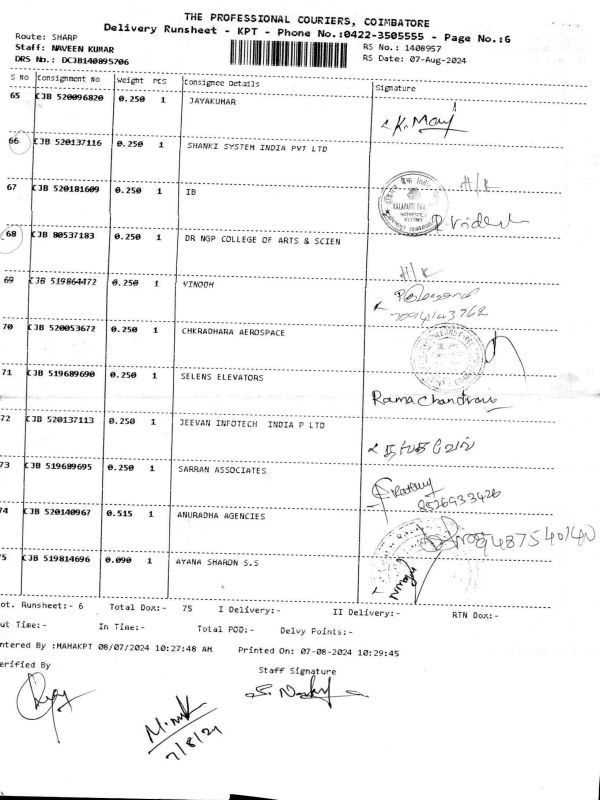 THE PROFESSIONAL COURIERS, COIMBATORE
Delivery Runsheet - KPT - Phone No.:0422-3505555 - Page No.:6
Route: SHARP
Staff: NAVEEN KUMAR RS No.: 1408957
DRS No.: DCJB140895706 RS Date: 07-Aug-2024
S No Consignment No Weight PCS Consignee Details Signature
65 CJB 520096820 0.250 1 JAYAKUMAR
66 CJB 520137116 0.250 1 SHANKI SYSTEM INDIA PVT LTD
H/R
67 CJB 520181609 0.250 1 IB
68 CJB 80537183 0.250 1 DR NGP COLLEGE OF ARTS & SCIEN
H/R
69 CJB 519864472 0.250 1 VINODH
70 CJB 520053672 0.250 1 CHKRADHARA AEROSPACE
71 CJB 519689690 0.250 1 SELENS ELEVATORS
Ramachandran
72 CJB 520137113 0.250 1 JEEVAN INFOTECH INDIA P LTD
73 CJB 519689695 0.250 1 SARRAN ASSOCIATES
8526933426
74 CJB 520140967 0.515 1 ANURADHA AGENCIES
9487540140
75 CJB 519814696 0.090 1 AYANA SHARON S.S
ot. Runsheet:- 6 Total Dox:- 75 I Delivery:- II Delivery:- RTN Dox:-
ut Time:- In Time:- Total POD:- Delvy Points:-
ntered By :MAHAKPT 08/07/2024 10:27:48 AM Printed On: 07-08-2024 10:29:45
erified By Staff Signature
7/8/24